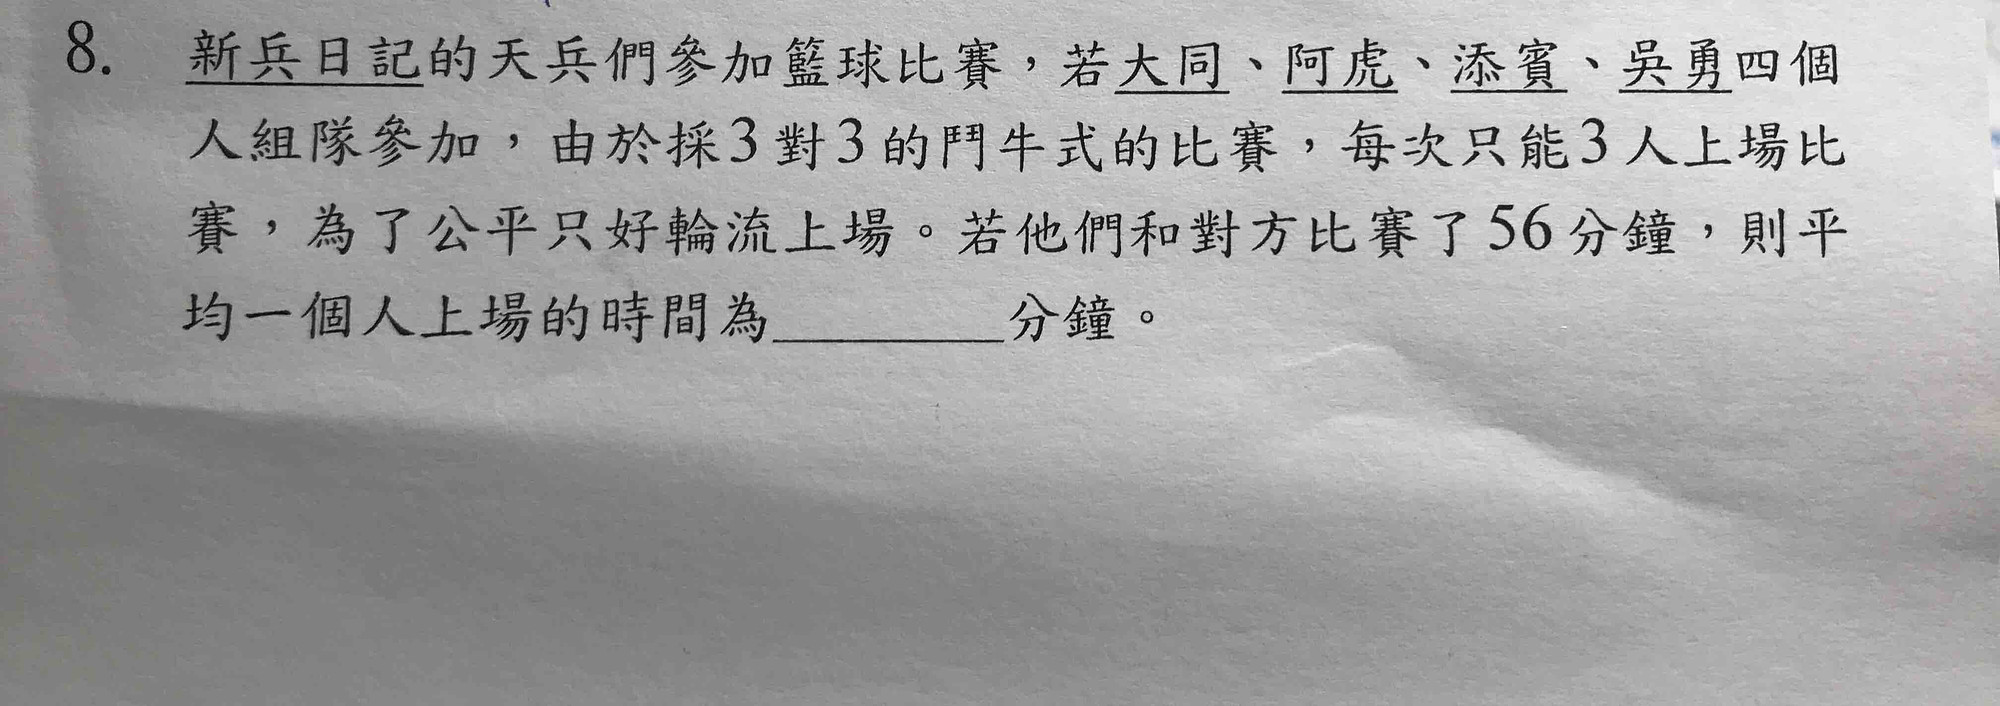 8. 新兵日記的天兵們參加籃球比賽，若大同、阿虎、添賓、吳勇四個
人組隊參加，由於採3對3的鬥牛式的比賽，每次只能3人上場比
賽，為了公平只好輪流上場。若他們和對方比賽了56分鐘，則平
均一個人上場的時間為________分鐘。